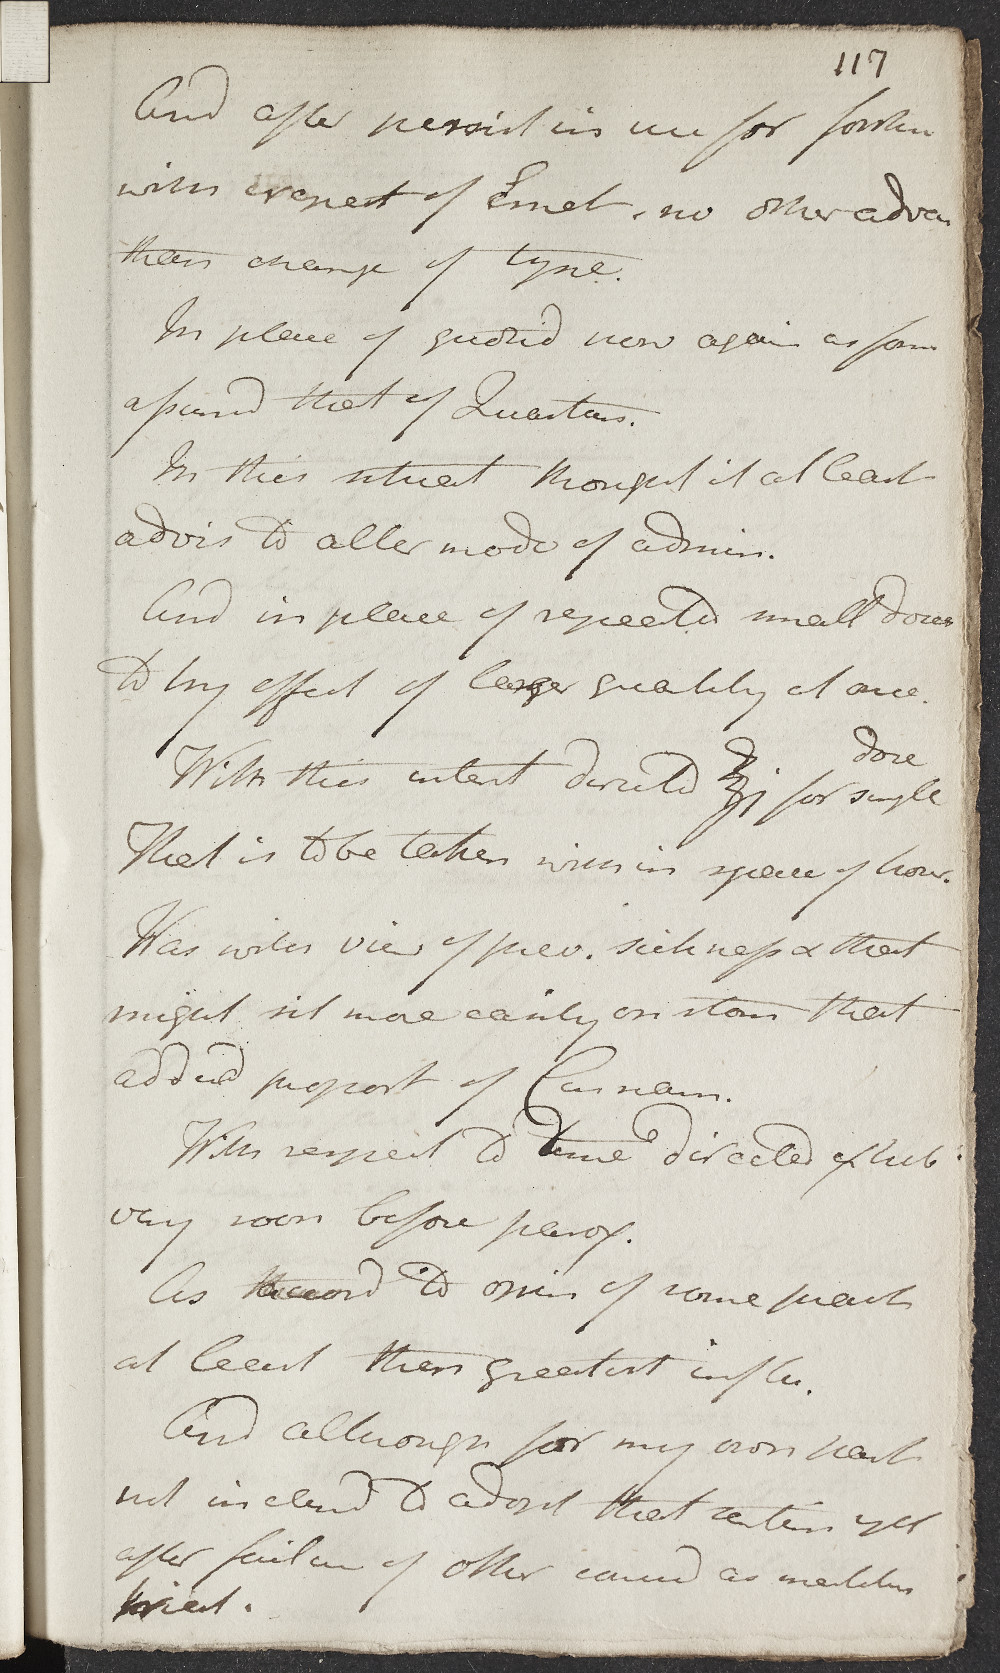 117
And after persist in use for
with repeat of Emet. no other adva
than change of type.
In place of quotid now again as form
assumd that of Quartan.
In this situat thought it at least
advis to alter mode of admin.
And in place of repeated small doses
to try effect of larger quantity at once.
dose
With this intent directd ℥j for single
That is to be taken within space of hour.
Was with view of prev. sickness & that
might sit more easily on stom that
added proport of
With respect to time directed exhib
very soon before parox.
As accord to opin of some pract
at least then greatest influ.
And although for my own part
not inclend to adopt that yet
after failure of other as
trial.